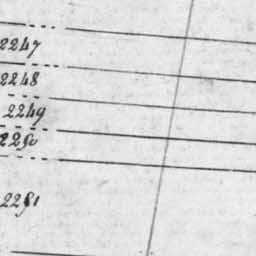 2247
2248
2249
2250
2251